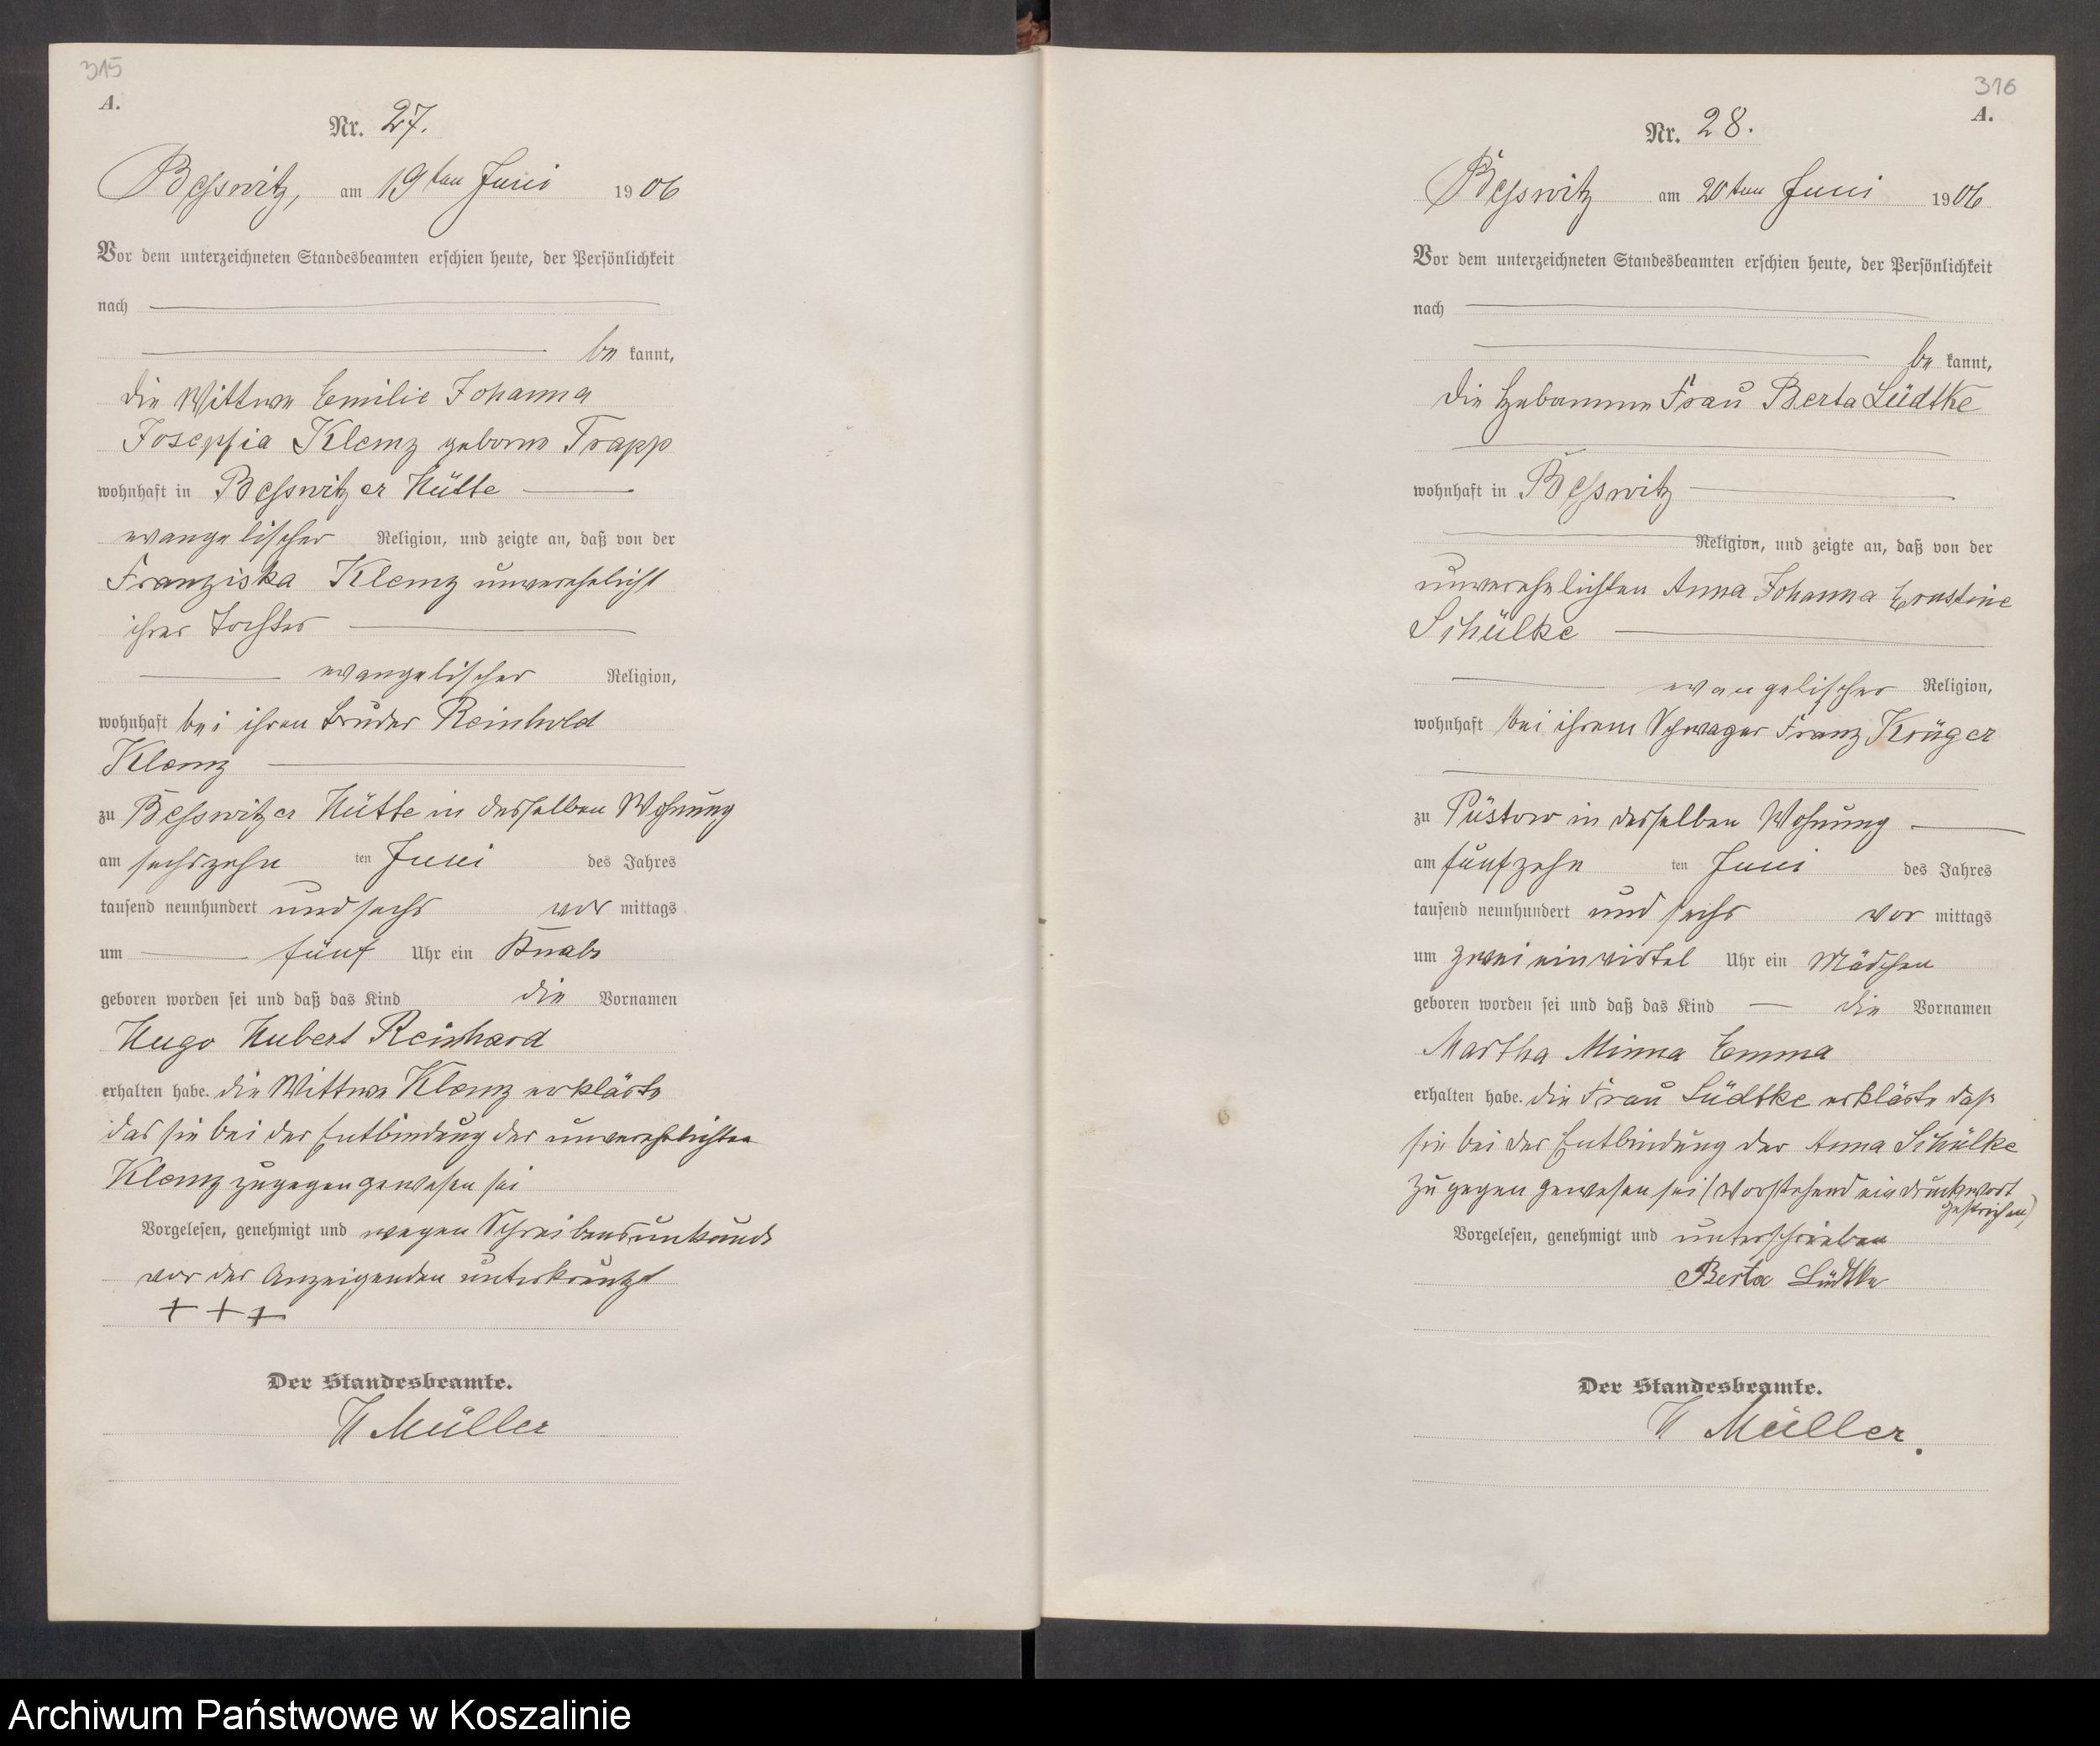 315
A.
Nr. 27.
Beßwitz, am 19ten Juni 1906
Vor dem unterzeichneten Standesbeamten erschien heute, der Persönlichkeit
nach
be kannt,
die Wittwe Emilie Johanna
Josephia Klemz geborne Trapp
wohnhaft in Beßwitzer Hütte
evangelischer Religion, und zeigte an, daß von der
Franziska Klemz unverehelicht
ihrer Tochter
evangelischer Religion,
wohnhaft bei ihren Bruder Reinhold
Klemz
zu Beßwitzer Hütte in desselben Wohnung
am sechszehn ten Juni des Jahres
tausend neunhundert und sechs vor mittags
um fünf Uhr ein Knabe
geboren worden sei und daß das Kind die Vornamen
Hugo Hubert Reinhard
erhalten habe. die Wittwe Klemz erklärte
das sie bei der Entbindung der unverehelichten
Klemz zugegen gewesen sei
Vorgelesen, genehmigt und wegen Schreibensunkunde
von der Anzeigenden unterkreuzt
+ + +
Der Standesbeamte.
H Müller
316
A.
Nr. 28.
Beßwitz am 20ten Juni 1906
Vor dem unterzeichneten Standesbeamten erschien heute, der Persönlichkeit
nach
be kannt,
die Hebamme Frau Berta Lüdtke
wohnhaft in Beßwitz
Religion, und zeigte an, daß von der
unverehelichten Anna Johanna Ernstine
Schülke
evangelischer Religion,
wohnhaft bei ihrem Schwager Franz Krüger
zu Püstow in desselben Wohnung
am fünfzehn ten Juni des Jahres
tausend neunhundert und sechs vor mittags
um zwei einviertel Uhr ein Mädchen
geboren worden sei und daß das Kind die Vornamen
Martha Minna Emma
erhalten habe. die Frau Lüdtke erklärte daß
sie bei der Entbindung der Anna Schülke
zu gegen gewesen sei (Vorstehend ein Druckwort
gestrichen)
Vorgelesen, genehmigt und unterschrieben
Berta Lüdtke
Der Standesbeamte.
H Müller.
Archiwum Państwowe w Koszalinie